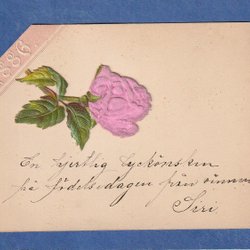 886.
En hjertlig lyckönskan
på födelsedagen från vännen
Siri